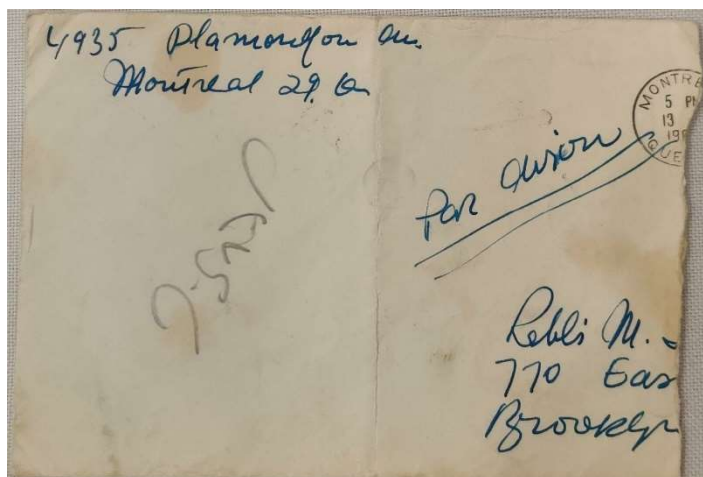 4935 Plamondon Av.
Montreal 29. Q
MONTRE
5 PM
13
19
QUE
Par Avion
Rabbi M.
770 Eas
Brooklyn